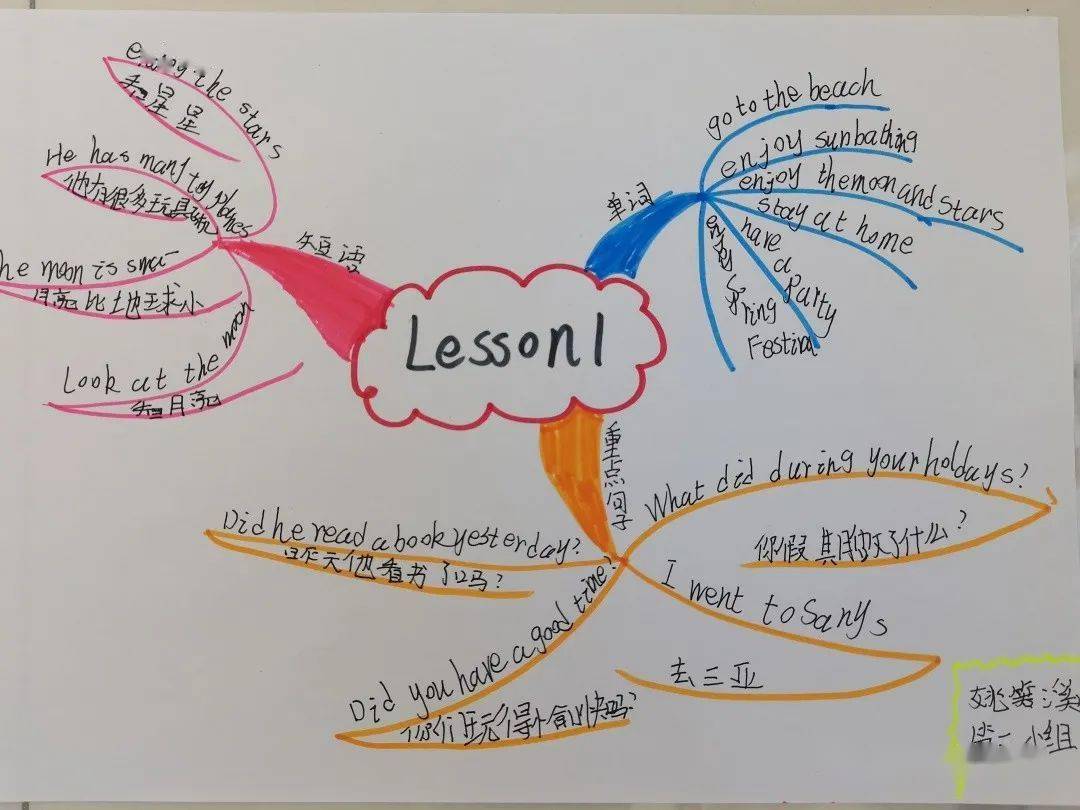 Lesson1
单词
go to the beach
enjoy sunbathing
enjoy the moon and stars
stay at home
have a Party
enjoy Spring Festival
短语
the stars
看星星
He has many toy planes
他有很多玩具飞机
he moon is sma
月亮比地球小
Look at the moon
看月亮
重点句子
What did during your holdays?
你假其月做了什么?
I went to Sanys
去三亚
Did you have a good time?
你们玩得愉快吗?
Did he read a book yesterday?
昨天他看书了吗?
小组